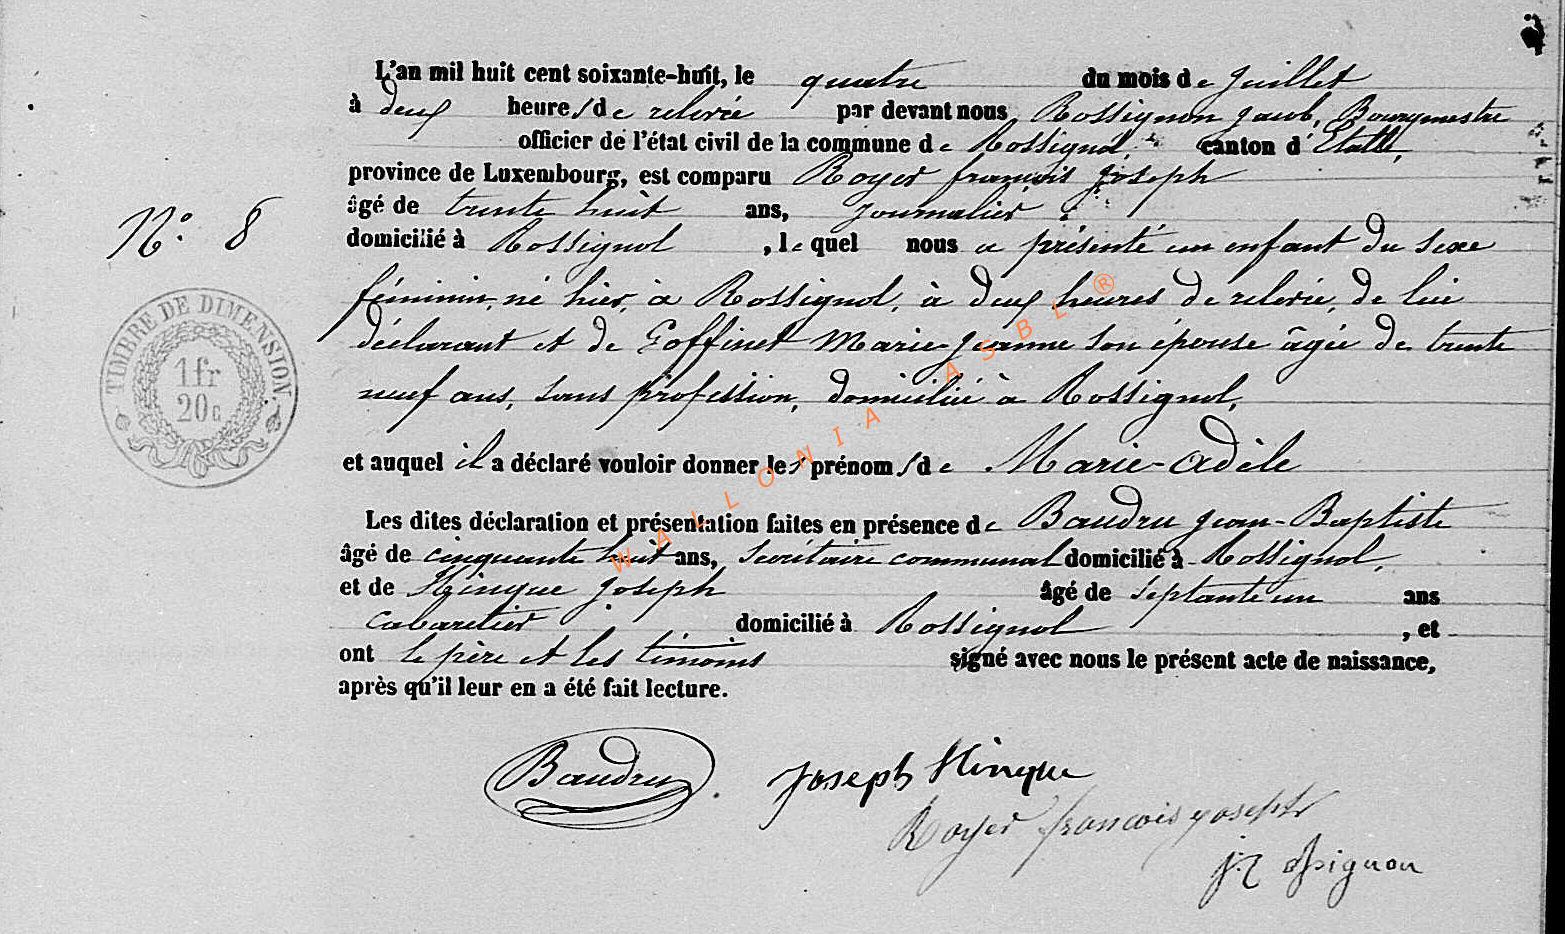 L'an mil huit cent soixante-huit, le quatre du mois de Juillet
à deux heures de relevée par devant nous Rossignon Jacob, Bourgmestre
officier de l'état civil de la commune de Rossignol, canton d'Etalle,
province de Luxembourg, est comparu Royer françois Joseph
âgé de trente huit ans, journalier,
domicilié à Rossignol, lequel nous a présenté un enfant du sexe
N° 8
féminin, né hier, à Rossignol, à deux heures de relevée, de lui
déclarant et de Goffinet Marie-Jeanne son épouse âgée de trente
neuf ans, sans profession, domiciliée à Rossignol,
TIMBRE DE DIMENSION.
1 fr
20 c
et auquel il a déclaré vouloir donner les prénoms de Marie-Adèle
Les dites déclaration et présentation faites en présence de Baudru Jean-Baptiste
âgé de cinquante huit ans, secrétaire communal domicilié à Rossignol,
et de Hinque Joseph âgé de septante un ans
cabaretier domicilié à Rossignol, et
ont le père et les témoins signé avec nous le présent acte de naissance,
après qu'il leur en a été fait lecture.
WALLONIA ASBL ®
Baudru.
Joseph Hinque
Royer francois joseph